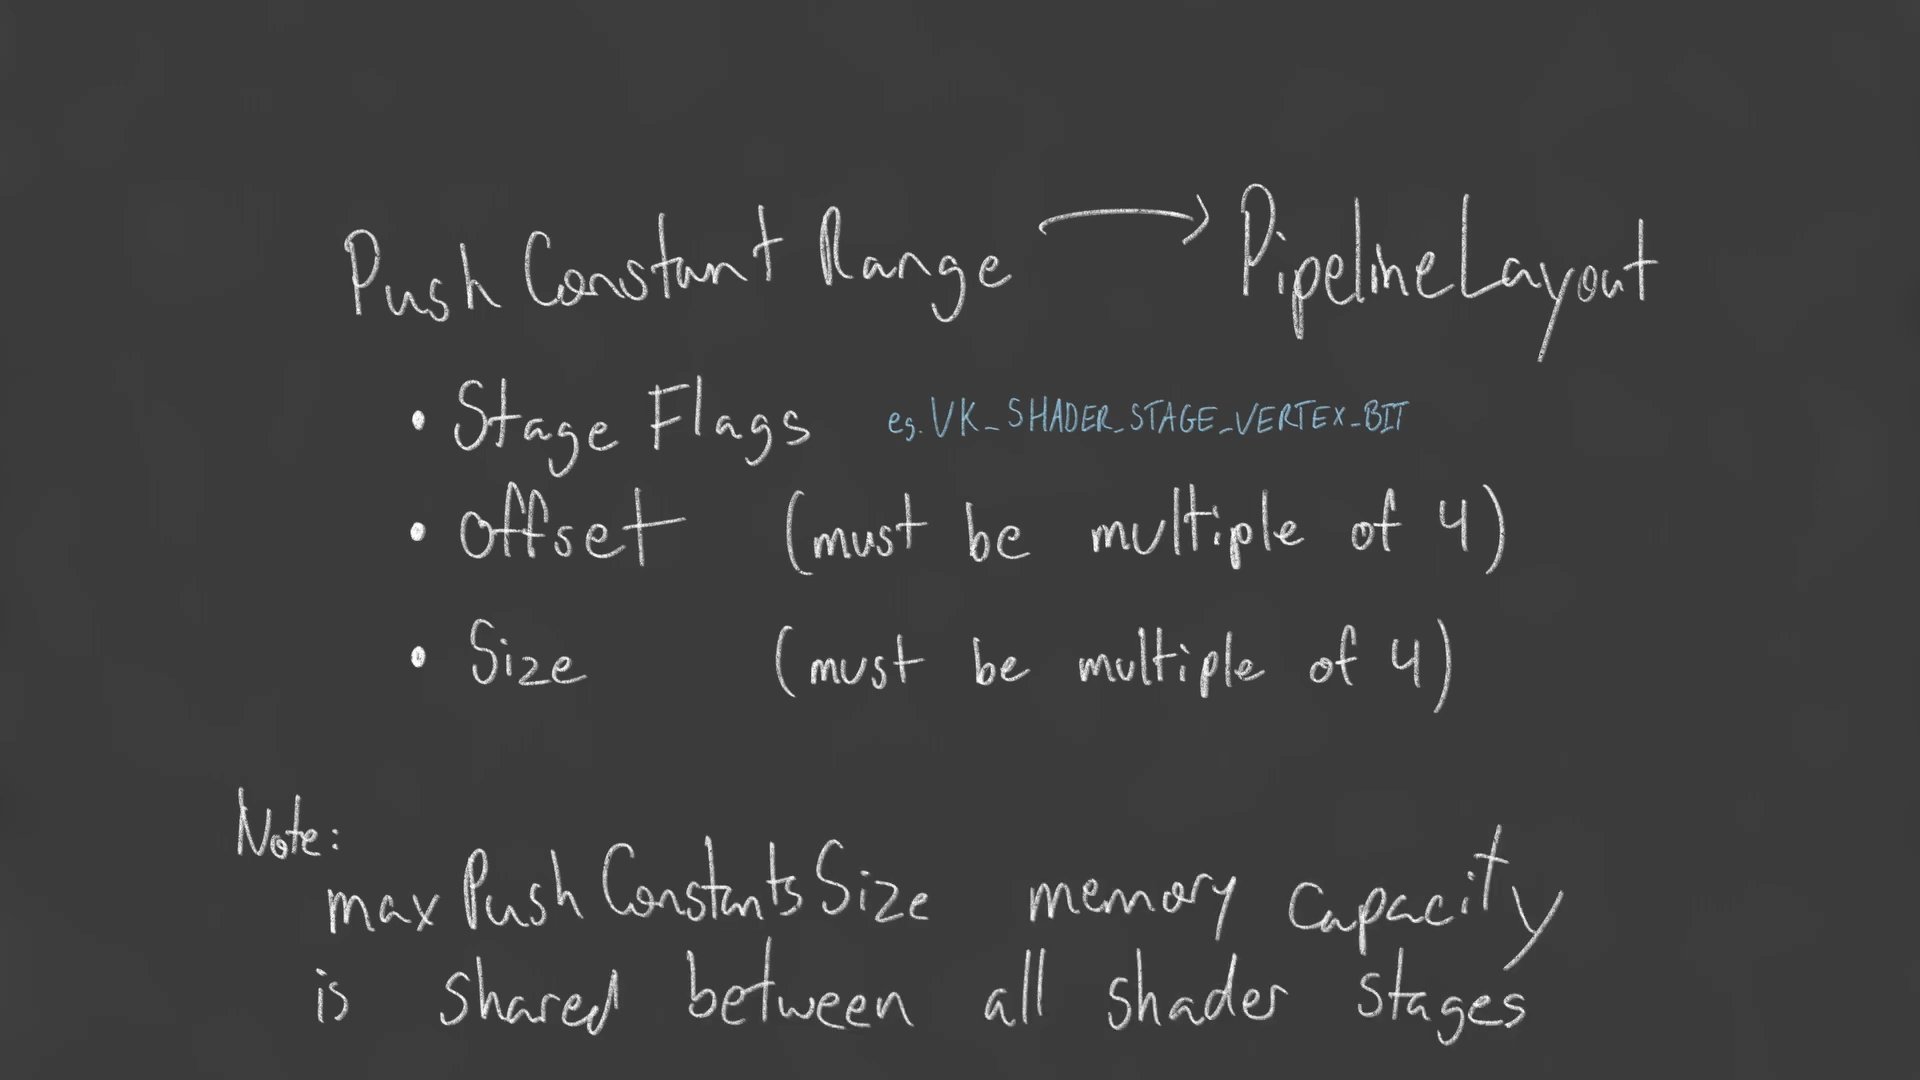 Push Constant Range → PipelineLayout
• Stage Flags eg. VK_SHADER_STAGE_VERTEX_BIT
• Offset (must be multiple of 4)
• Size (must be multiple of 4)
Note:
maxPushConstantsSize memory capacity
is shared between all shader stages